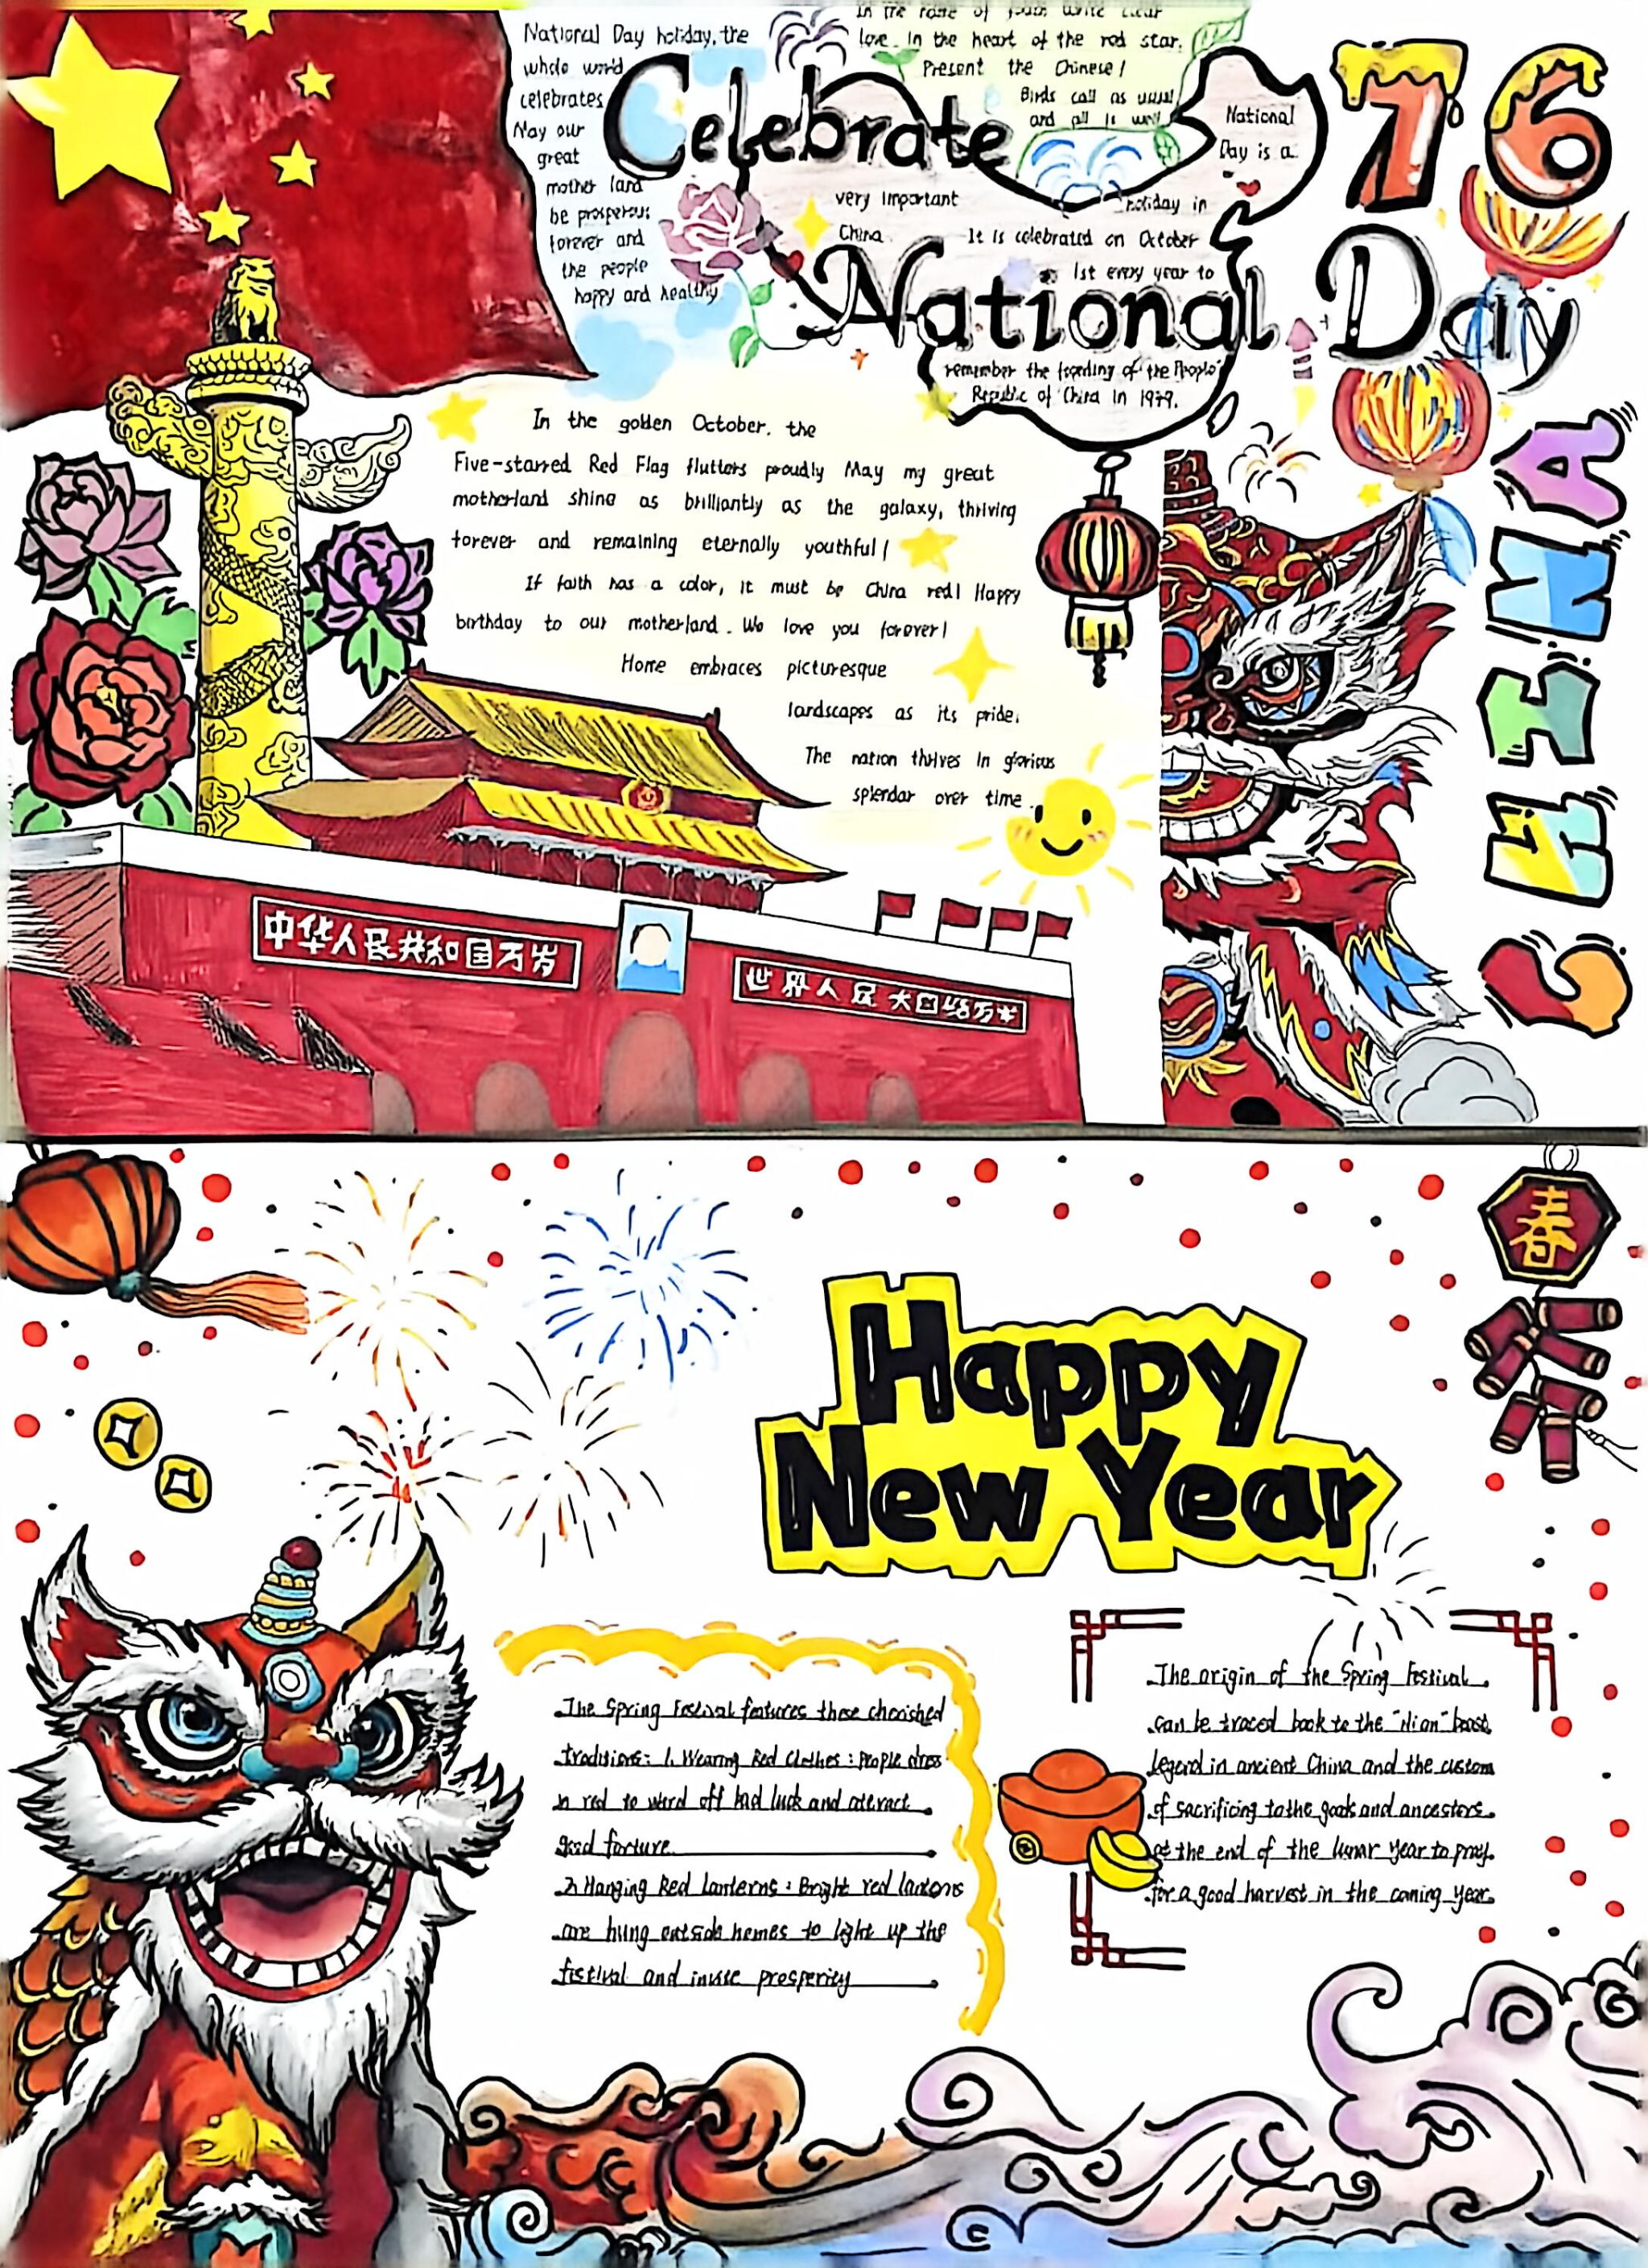 National Day holiday, the
whole world
celebrates
May our
great
mother land
be prosperous
forever and
the people
happy and healthy
In the name of youth write clear
love. In the heart of the red star.
Present the Chinese!
Birds call as usual
and all is well
Celebrate
76
National
Day is a
very important
holiday in
China.
It is celebrated on October
1st every year to
National Day
remember the founding of the People'
Republic of China in 1949.
In the golden October. the
Five-starred Red Flag flutters proudly May my great
motherland shine as brilliantly as the galaxy, thriving
forever and remaining eternally youthful!
If faith has a color, it must be China red! Happy
birthday to our motherland. We love you forever!
Home embraces picturesque
landscapes as its pride.
The nation thrives in glorious
splendar over time.
CHINA
中华人民共和国万岁
世界人民大团结万岁
春
Happy
New Year
The Spring Festival features these cherished
traditions: 1. Wearing Red Clothes: People dress
in red to ward off bad luck and attract
good fortune
2. Hanging Red Lanterns: Bright red lanterns
are hung outside homes to light up the
festival and invite prosperity
The origin of the Spring Festival
can be traced back to the "Nian" beast
legend in ancient China and the custom
of sacrificing to the gods and ancestors
at the end of the lunar year to pray
for a good harvest in the coming year.